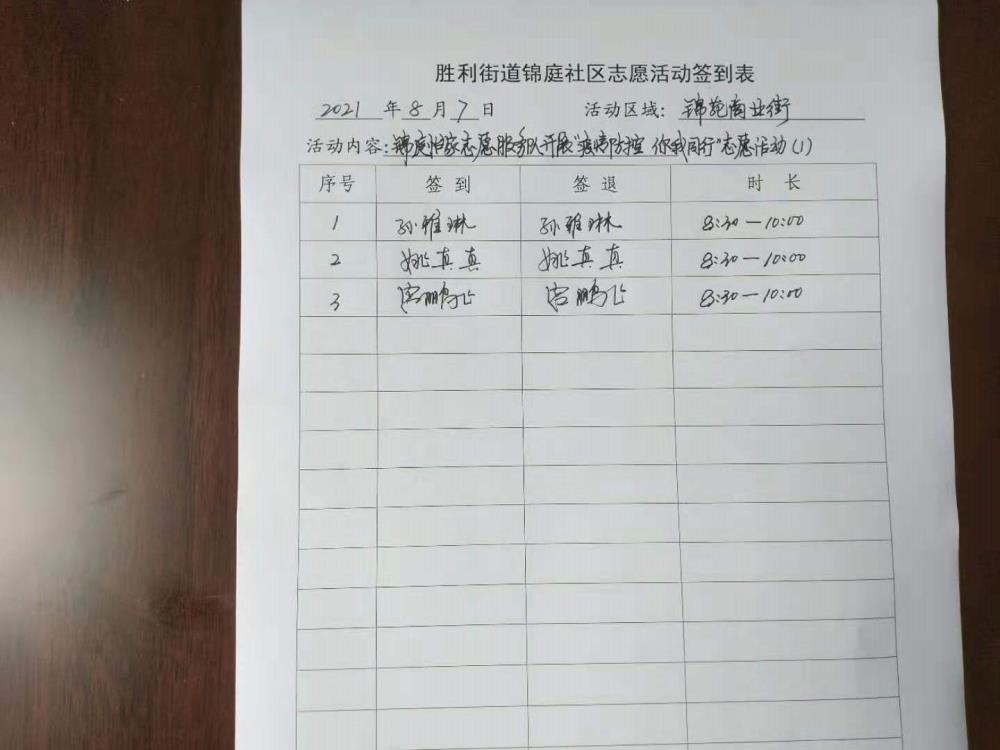 胜利街道锦庭社区志愿活动签到表
2021 年 8 月 7 日 活动区域: 锦苑商业街
活动内容: 锦庭怡家志愿服务队开展"疫情防控 你我同行"志愿活动(1)
序号 签到 签退 时长
1 孙雅琳 孙雅琳 8:30—10:00
2 姚真真 姚真真 8:30—10:00
3 鹏飞 鹏飞 8:30—10:00